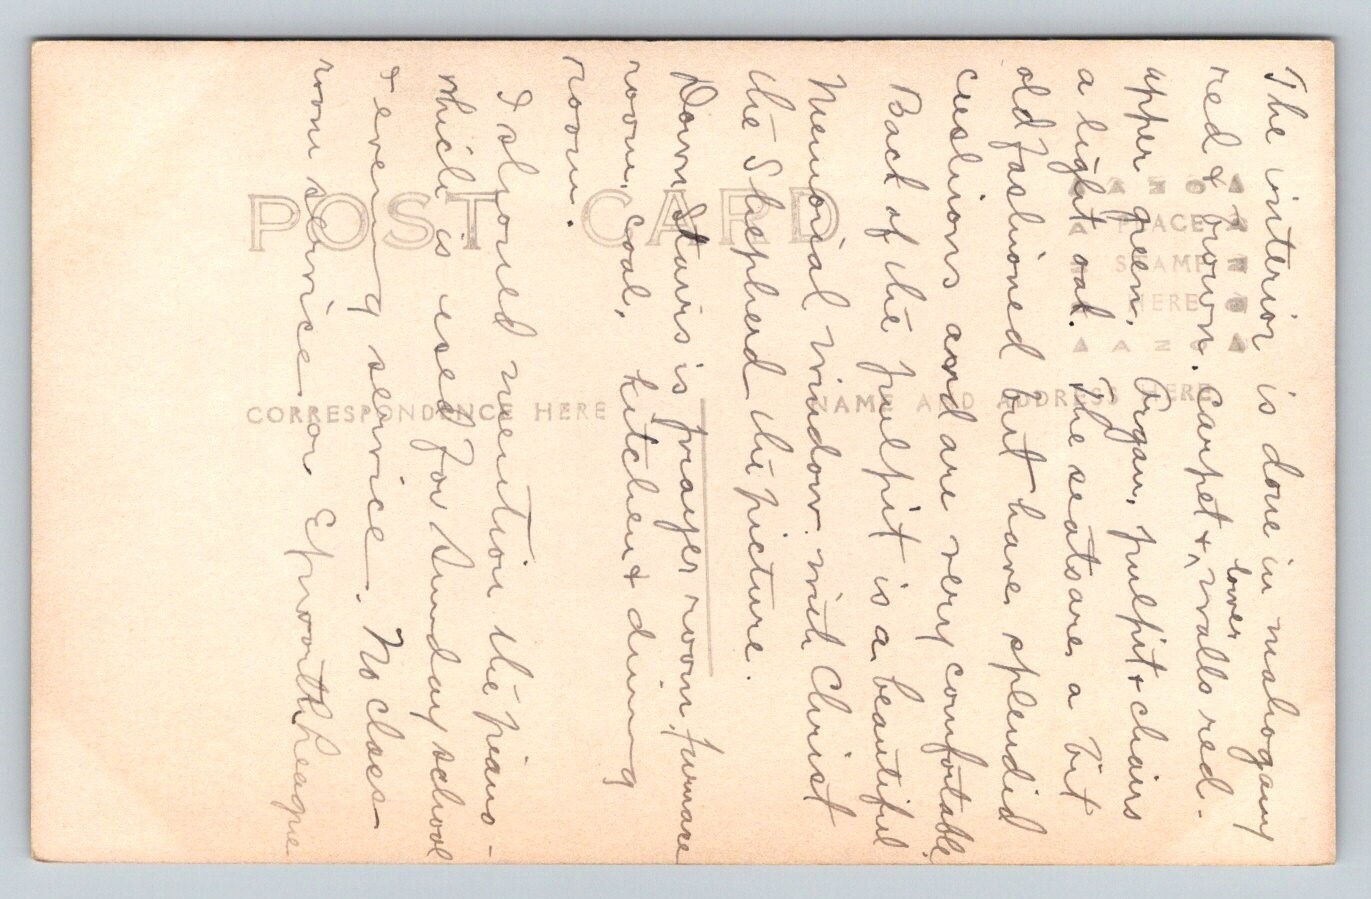 The interior is done in mahogany
red & brown. Carpet & lower walls red.
upper green. Organ, pulpit & chairs
a light oak. The seats are a bit
old fashioned but have splendid
cushions and are very comfortable.
Back of the pulpit is a beautiful
Memorial window with Christ
the Shepherd the picture.
Down stairs is prayer room, furnace
room, coal, kitchen & dining
room.
I should mention the piano -
which is used for Sunday school
& evening service. No class-
room service or Epworth League
POST CARD
CORRESPONDENCE HERE
NAME AND ADDRESS HERE
AZO
PLACE
STAMP
HERE
AZO